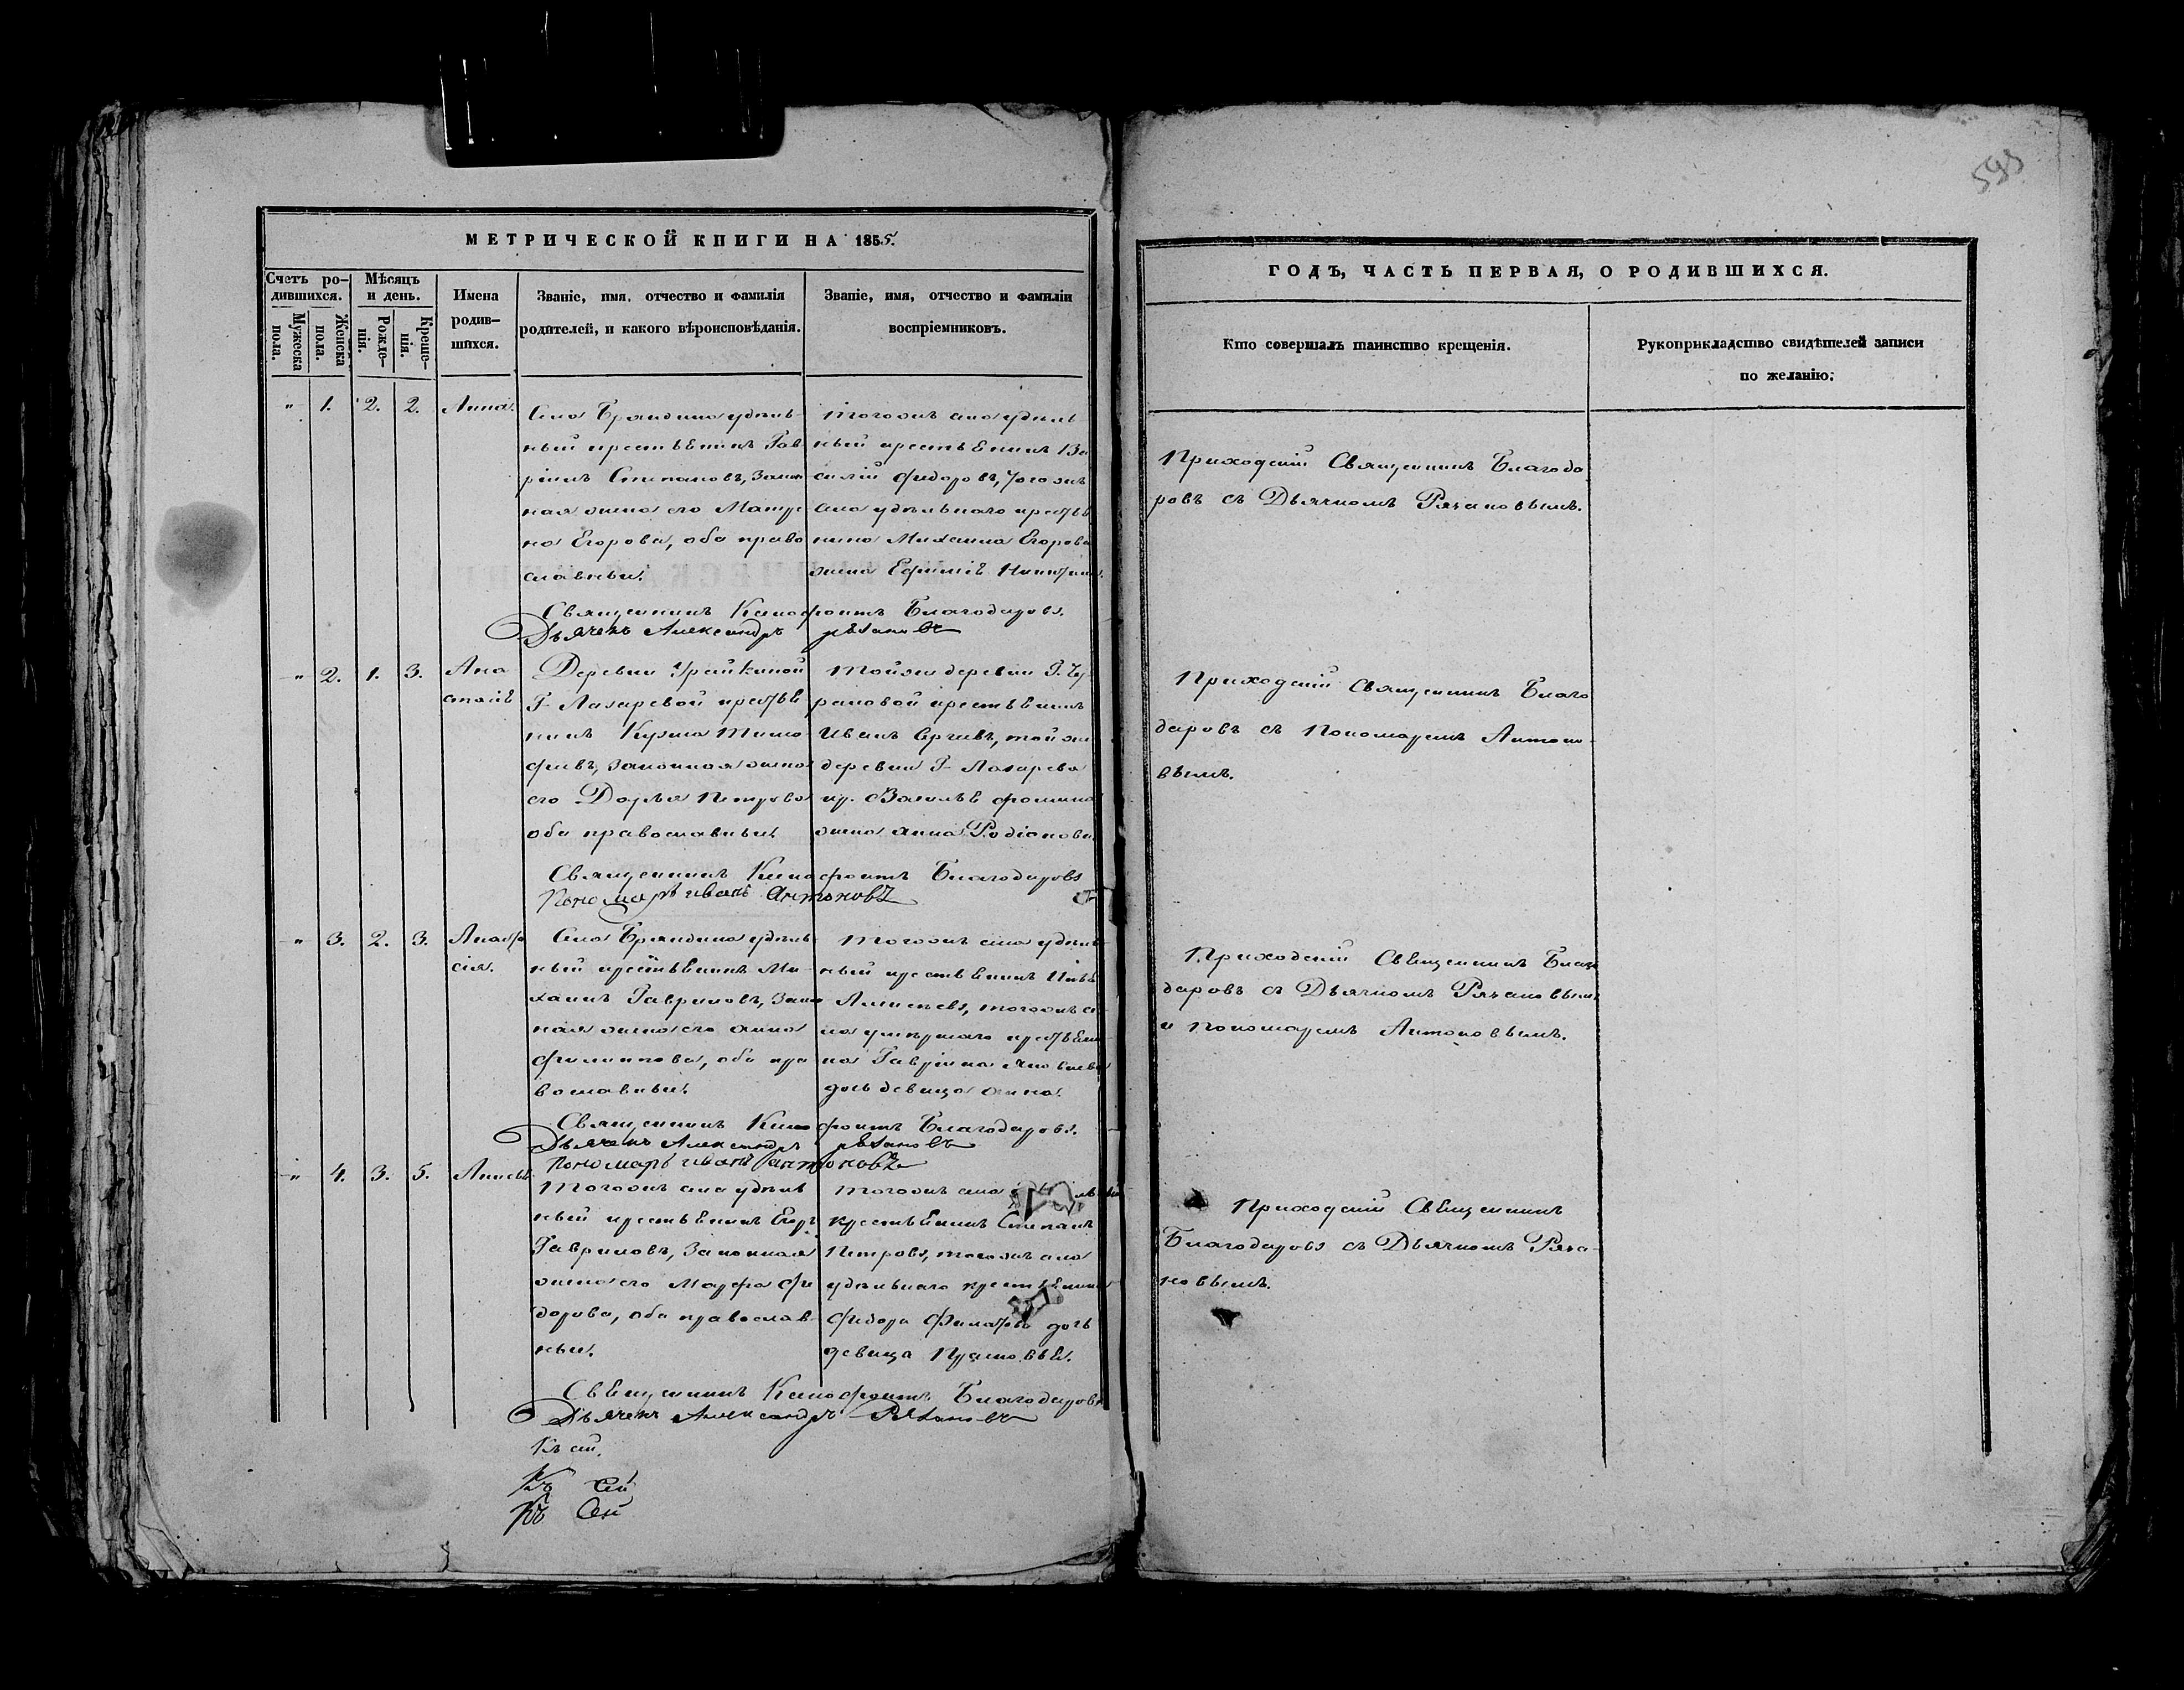 593
МЕТРИЧЕСКОЙ КНИГИ НА 1855.
Счетъ ро-
дившихся.
Мужеска
пола.
Женска
пола.
Мѣсяцъ
и день.
Рожде-
нія.
Креще-
нія.
Имена
родив-
шихся.
Званіе, имя, отчество и фамилія
родителей, и какого вѣроисповѣданія.
Званіе, имя, отчество и фамиліи
воспріемниковъ.
" 1. 2. 2. Анна.
Села Бряндина удѣль-
ный крестьянинъ Гав-
ріилъ Степановъ, закон
ная жена его Матре
на Егорова, оба право
славные.
Тогожъ села удѣль
ный крестьянинъ Ва
силій Федоровъ, тогожъ
села удѣльнаго кресть
нина Михаила Егорова
жена Ефимія
Священникъ Ксенофонтъ Благодаровъ.
Дьячекъ Александръ Рязановъ
" 2. 1. 3. Ана
стасія
Деревни Урайкиной
Г. Лазаревой крестья
нинъ Кузма Тимо
феевъ, законная жена
его Дарья Петрова
оба православные.
Тойже деревни Г.
крестьянинъ
Иванъ Сергеевъ, той же
деревни Г. Лазарева
кр. Василья Фомина
жена Анна Родіонова
Священникъ Ксенофонтъ Благодаровъ
Пономарь Иванъ Антоновъ
" 3. 2. 3. Анаста
сія.
Села Бряндина удѣль
ный крестьянинъ Ми-
хаилъ Гавриловъ, закон
ная жена его Анна
Филиппова, оба пра
вославные.
Тогожъ села удѣль
ный крестьянинъ
Алексѣевъ, тогожъ се
ла умершаго крестьяни
на Гавріила Яковлева
дочь девица Анна.
Священникъ Ксенофонтъ Благодаровъ.
Дьячекъ Александръ Рязановъ
Пономарь Иванъ Антоновъ
" 4. 3. 5.
Тогожъ села удѣль
ный крестьянинъ Егоръ
Гавриловъ, законная
жена его Марфа Фе
дорова, оба православ-
ные.
Тогожъ села
крестьянинъ Степанъ
Петровъ, тогожъ села
удѣльнаго крестьянина
Федора дочь
девица
Священникъ Ксенофонтъ Благодаровъ
Дьячекъ Александръ Рязановъ
Къ сей.
Къ сей
Къ Сей
ГОДЪ, ЧАСТЬ ПЕРВАЯ, О РОДИВШИХСЯ.
Кто совершалъ таинство крещенія.
Рукоприкладство свидѣтелей записи
по желанію.
Приходскій Священникъ Благода
ровъ съ Дьячкомъ Рязановымъ.
Приходскій Священникъ Благо
даровъ съ Пономаремъ Антоно-
вымъ.
Приходскій Священникъ Благо
даровъ съ Дьячкомъ Рязановымъ
и Пономаремъ Антоновымъ.
Приходскій Священникъ
Благодаровъ съ Дьячкомъ Ряза-
новымъ.